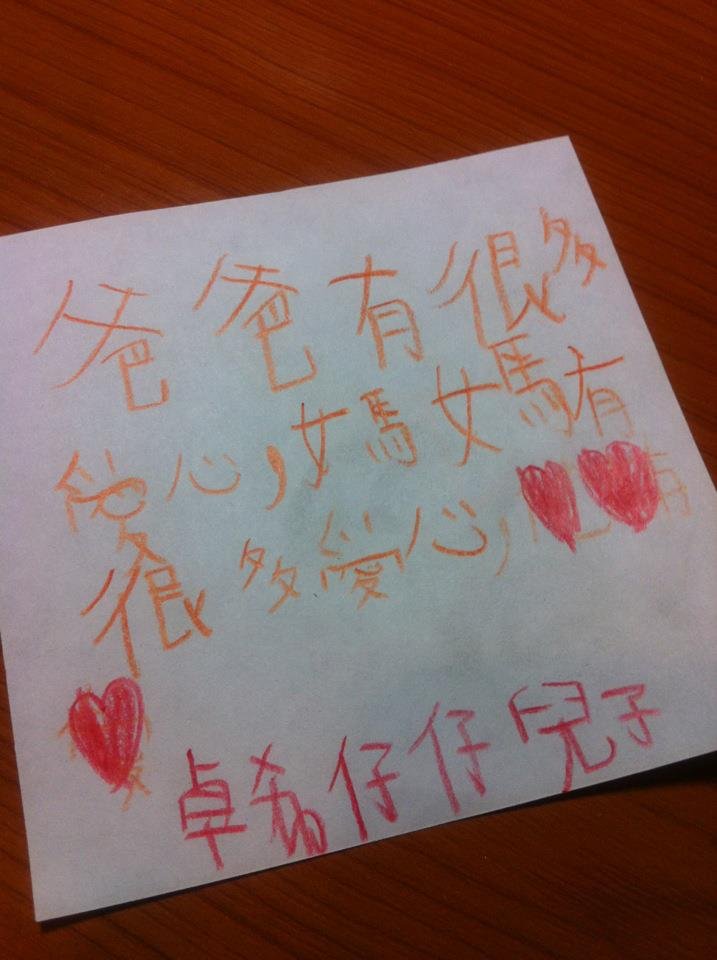 爸爸有很多
愛心,媽媽有
很多愛心,
卓希仔仔兒子